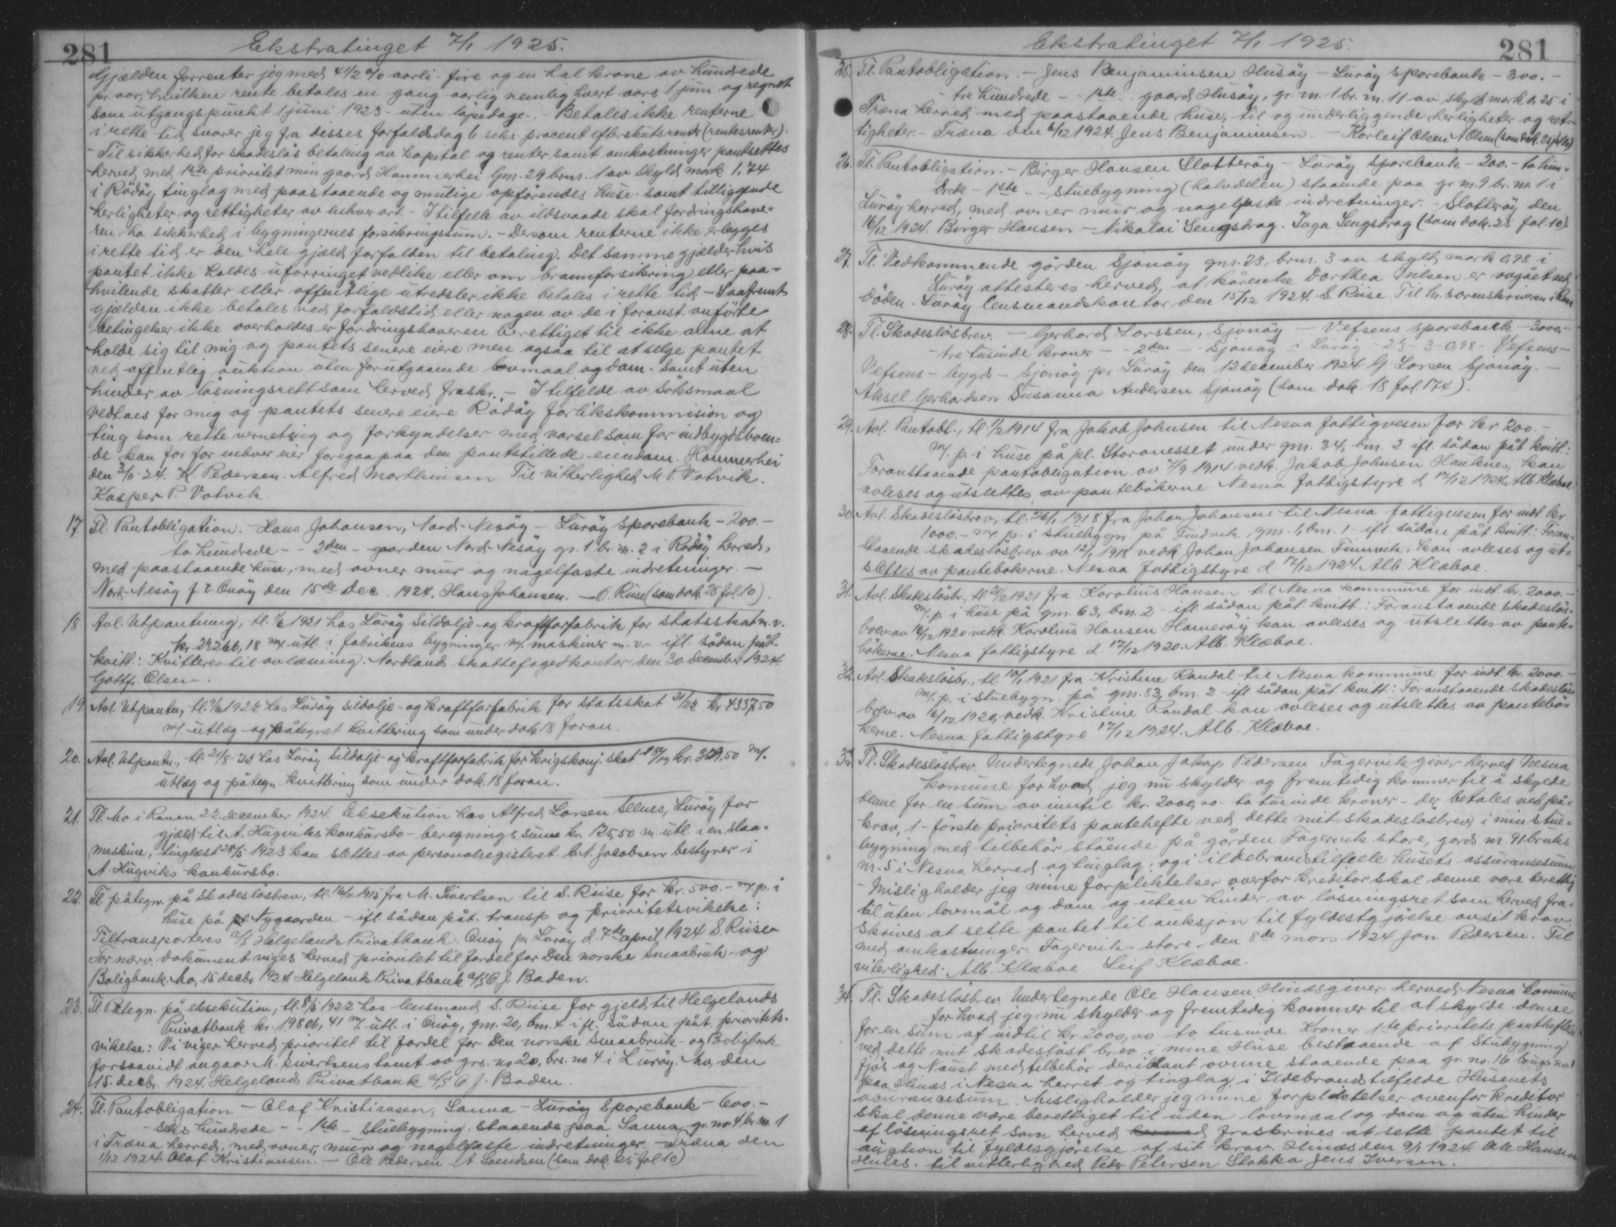 281
Ekstratinget 7/1 1925.
Gjælden forrenter jeg med 4 1/2 % aarli fire og en hal krone av hundrede
pr. aar, hvilken rente betales en gang aarlig nemlig hvert aars 1 juni og regnet
som utgangspunkt 1 juni 1923 uten løpedage. - Betales ikke renterne
i rette tid svarer jeg fra disses forfaldsdag 6 seks procent efterskuds rente (rentesrenter).
- Til sikkerhed for skadesløs betaling av kapital og renter samt omkostninger pantsettes
herved med 1ste prioritet min gaard Hammerhei gm. 29 brm. 1 av skyld mark 1,74
i Rödöy tinglag med paastaaende og mulige opförendes huse samt tilliggende
herligheter og rettigheter av enhver art - I tilfelle av ildsvaade skal fordringshave-
ren ha sikkerhed i bygningernes forsikringssum. - Dersom renterne ikke erlegges
i rette tid er den hele gjæld forfalden til betaling. Det samme gjælder hvis
pantet ikke holdes uforringet vedlike eller om brannforsikring eller paa-
hvilende skatter eller offentlige utredsler ikke betales i rette tid - Saafremt
gjælden ikke betales ved forfaldstid eller nogen av de i foranst. anförte
betingelser ikke overholdes er fordringshaveren berettiget til ikke alene at
holde sig til mig og pantets senere eiere men ogsaa til at selge pantet
ved offentleg auktion uten forutgaaende lovmaal og dom - samt uten
hinder av løsningsrett som herved fraskr. - I tilfelde av söksmaal
vedtaes for meg og pantets senere eiere Rödöy forlikskommision og
ting som rette verneting og forkyndelser med varsel som for indbygdsboen-
de kan for for enhver eier foregaa paa den pantstillede eiendom. Hammerhei
den 3/6 24. K. Pedersen. Alfred Marthinsen. Til vitterlighed M. P. Votvik.
Kasper P. Votvik.
17. Tl. Pantobligation. - Hans Johansen, Nord-Nesöy - Luröy Sparebank - 200.-
to hundrede - - 2den - gaarden Nord-Nesöy gn. 1 br. n. 2 i Rödöy herred,
med paastaaende huse, med ovner mur og nagelfaste indretninger. -
Nord-Nesöy f. t. Onöy den 15de Dec. 1924. Hans Johansen. - O. Riise (som dok. 28 fol. 10).
18. Avl. Utpantning, tl. 1/6 1921 hos Luröy Sildolje- og kraftforfabrik for statsskat m. v.
kr. 23266,18 m/ utl. i fabrikens bygninger m/ maskiner m. v. - ift. sådan påt.
kvitt: Kvitteres til avlæsning. Nordland skattefogedkontor den 30 december 1924
Gottf. Olsen.
19. Avl. Utpantn, tl. 1/6 1922 hos Luröy sildolje- og kraftforfabrik for statsskat 21/22 kr. 4337,50
m/ utlæg og påtegnet kvittering som under dok. 18 foran.
20. Avl. Utpantn., tl. 21/8-20 hos Luröy Sildolje og kraftforfabrik for krigskonj. skat kr. 50 m/.
utlæg og påtegn. kvittering som under dok. 18 foran.
21. Tl. Mo i Ranen 22 december 1924. Eksekution hos Alfred Larsen, Luröy for
gjeld til A. Hugviks konkursbo - beregnings suma kr. 125,50 m. utl. i en slaa-
maskine, tinglæst 28/5 1923 kan slettes av personalregisteret. A. Jacobsen bestyrer i
A. Hugviks konkursbo.
22. Tl. påtegn. på Skadeslösbrev, tl. 16/11 1915 fra M. Sivertsen til S. Riise for kr. 500.- m/ p. i
huse på pl. Nygaarden - ift. sådan påt. transp. og prioritetsvikelse:
Tiltransporteres a/s Helgelands Privatbank. Onöy pr. Luröy d. 7de april 1924 S. Riise.
For nærv. dokument viges herved prioritet til fordel for Den norske Smaabruk- og
Boligbank. Mo, 15 decbr 1924. Helgelands Privatbank a/s C. J. Baden.
23. Tl. Påtegn. på eksekution, tl. 8/5 1922 hos lensmand S. Riise for gjeld til Helgelands
Privatbank kr. 19806,41 m/ utl. i Onöy, gm. 20, bm. ift. sådan påt. prioritets-
vikelse: Vi viger herved prioritet til fordel for Den norske Smaabruk- og Boligbank
forsaavidt angaar M. Sivertsens tomt av grs. no. 20, brs. no 4 i Luröy. Mo, den
15. decbr. 1924. Helgelands Privatbank a/s C. J. Baden.
24. Tl. Pantobligation - Olaf Kristiansen, Sanna - Luröy Sparebank - 600.-
seks hundrede - - 1ste - stuebygning staaende paa Sanna gr. no 4 br. m. 1
i Træna herred, med ovner, mur og nagelfaste indretninger. - Træna den
1/12 1924. Olaf Kristiansen. - Ole Pedersen A Svendsen (som dok. 25 fol. 10)
281
Ekstratinget 7/1 1925.
25. Tl. Pantobligation. - Jens Benjaminsen Husöy - Luröy Sparebank - 300.-
tre hundrede - - 1ste - gaard Husöy, gr. n. 1 br. n. 11 av skyld mark 0.25 i
Træna herred med paastaaende huse, til og underliggende herligheter og ret-
tigheter. - Træna den 6/12 1924. Jens Benjaminsen. - Korleif Olsen. N Olsen (som dok. 28 fol. 10)
26. Tl. Pantobligation - Birger Hansen Slotteröy - Luröy Sparebank - 200.- to hun-
drede - 1ste - - stuebygning (halvdelen) staaende paa gr. m. 9 br. no. 1 i
Luröy herred, med ovner mur og nagelfaste indretninger. - Slotteröy den
16/12 1924. Birger Hansen - Nikolai Sengsdrag. Inga Sengsdrag (som dok. 28 fol. 10).
27. Tl. Vedkommende gården Sjonöy gm. 23, brm. 3 av skyld mark 0,98 i
Luröy attesteres herved, at kårenke Dorthea Intsen er avgået ved
döden. Luröy lensmandskontor den 15/12 1924. S. Riise. Til hr. sorenskriveren i Ranen
28. Tl. Skadeslösbrev. - Gerhard Larssen, Sjonöy - Vefsens Sparebank - 3000.-
tre tusinde kroner - 2den - Sjonöy i Luröy - 23 - 3 - 0,98 - Vefsens -
Vefsens - bygd - Sjonöy pr. Luröy den 12 december 1924 G Larsen Sjonöy. -
Aksel Gerhardsen Susanna Andersen Sjonöy (som dok 18 fol 174)
29. Avl. Pantobl., tl. 1/2 1914 fra Jakob Johnsen til Nesna fattigvesen for kr 200.-
m/. p. i huse på pl. Storanesset under gm. 34, bm. 2 ift. sådan påt kvitt:
Foranstaaende pantobligation av 1914 vedk. Jakob Johnsen Handnes, kan
avleses og utslettes av pantebökerne. Nesna fattigstyre d. 17/12 1924. Alb. Klæboe
30. Avl. Skadeslösbrev, tl. 26/1 1918 fra Johan Johansen til Nesna fattigvesen for indt kr
1000.- m/ p. i stuebygn. på Finnvik, gm. 1, bm. 1 - ift sådan påt kvitt: Foran-
staaende skadeslösbrev av 12/1 1918 vedk. Johan Johansen Finnvik, kan avleses og ut-
slettes av pantebökerne. Nesna fattigstyre d. 17/12 1924. Alb. Klæboe.
31. Avl. Skadeslösbr, tl. 1921 fra Karolius Hansen til Nesna kommune for indt. kr. 2000.-
m/. p. i huse på gm. 63, bm. 2 - ift sådan påt kvitt: Foranstaaende skadeslös-
brev av 16/12 1920 vedk. Karolius Hansen Hameröy kan avleses og utslettes av pante-
bökerne. Nesna fattigstyre d. 17/12 1920. Alb. Klæboe.
32. Avl. Skadeslösbr., tl. 1921 fra Kristine Randal til Nesna kommune for indt. kr. 2000.-
m/. p. i stuebygn. på gm. 83, bm. 2 - ift sådan påt kvitt: Foranstaaende skadeslös-
brev av 16/12 1920, vedk. Kristine Randal kan avleses og utslettes av pantebö-
kerne. Nesna fattigstyre 17/12 1924. Alb. Klæboe.
33. Tl. Skadeslösbrev. Undertegnede Johan Jakop Pedersen Fagervik giver herved Nesna
komune for hvad jeg nu skylder og fremtidig kommer til å skylde
denne for en sum av inntil kr. 2000,00 to tusinde kroner - der betales ved på-
krav, 1 - förste prioritets pantehefte ved dette mit skadeslösbrev i min stue-
bygning med tilbehör stående på gården Fagervik store, gards m 91 bruks
m. 5 i Nesna herred og tinglag, og i ildebrandstilfelle husets assuransesum
- Misligholder jeg mine forpliktelser overfor kreditor skal denne være berettig
til uten lovmål og dom og uten hinder av lösningsret som herved fra-
skrives at sette pantet til auksjon til fyldestgjörelse av sit krav
med omkostninger. Fagervik store den 8de mars 1924 Jon Pedersen. Til
viterlighed: Alb. Klæboe Leif Klæboe.
34. Tl. Skadeslösbrev. Undertegnede Ole Hansen Hinæs giver herved Nesna komune
for hvad jeg nu skylder og fremtidig kommer til at skylde denne
for en sum af indtil kr. 2000,00 to tusinde kroner 1ste prioritets panthefte
ved dette mit skadeslöst brev i mine Huse bestaaende af Stubygning
fjös og Naust med tilbehör deriblant ovnne staaende paa gr. no. 16 brugs no 1
paa Hinæs i Nesna herret og tinglag i Ildebrandstilfelde Husenets
acurancesum. Misligholder jeg mine forpliktelser ovenfor kreditor
skal denne være berettiget til uden lovmaal og dom og uten hinder
af lösningsret som herved fraskrives at sette pantet til
auction til fyldesgjörelse af sit krav. Hinæs den 9/1 1924 Ole Hansen
Hinæs. til vitterlighed Peder Petersen Slokka Jens Iversen.